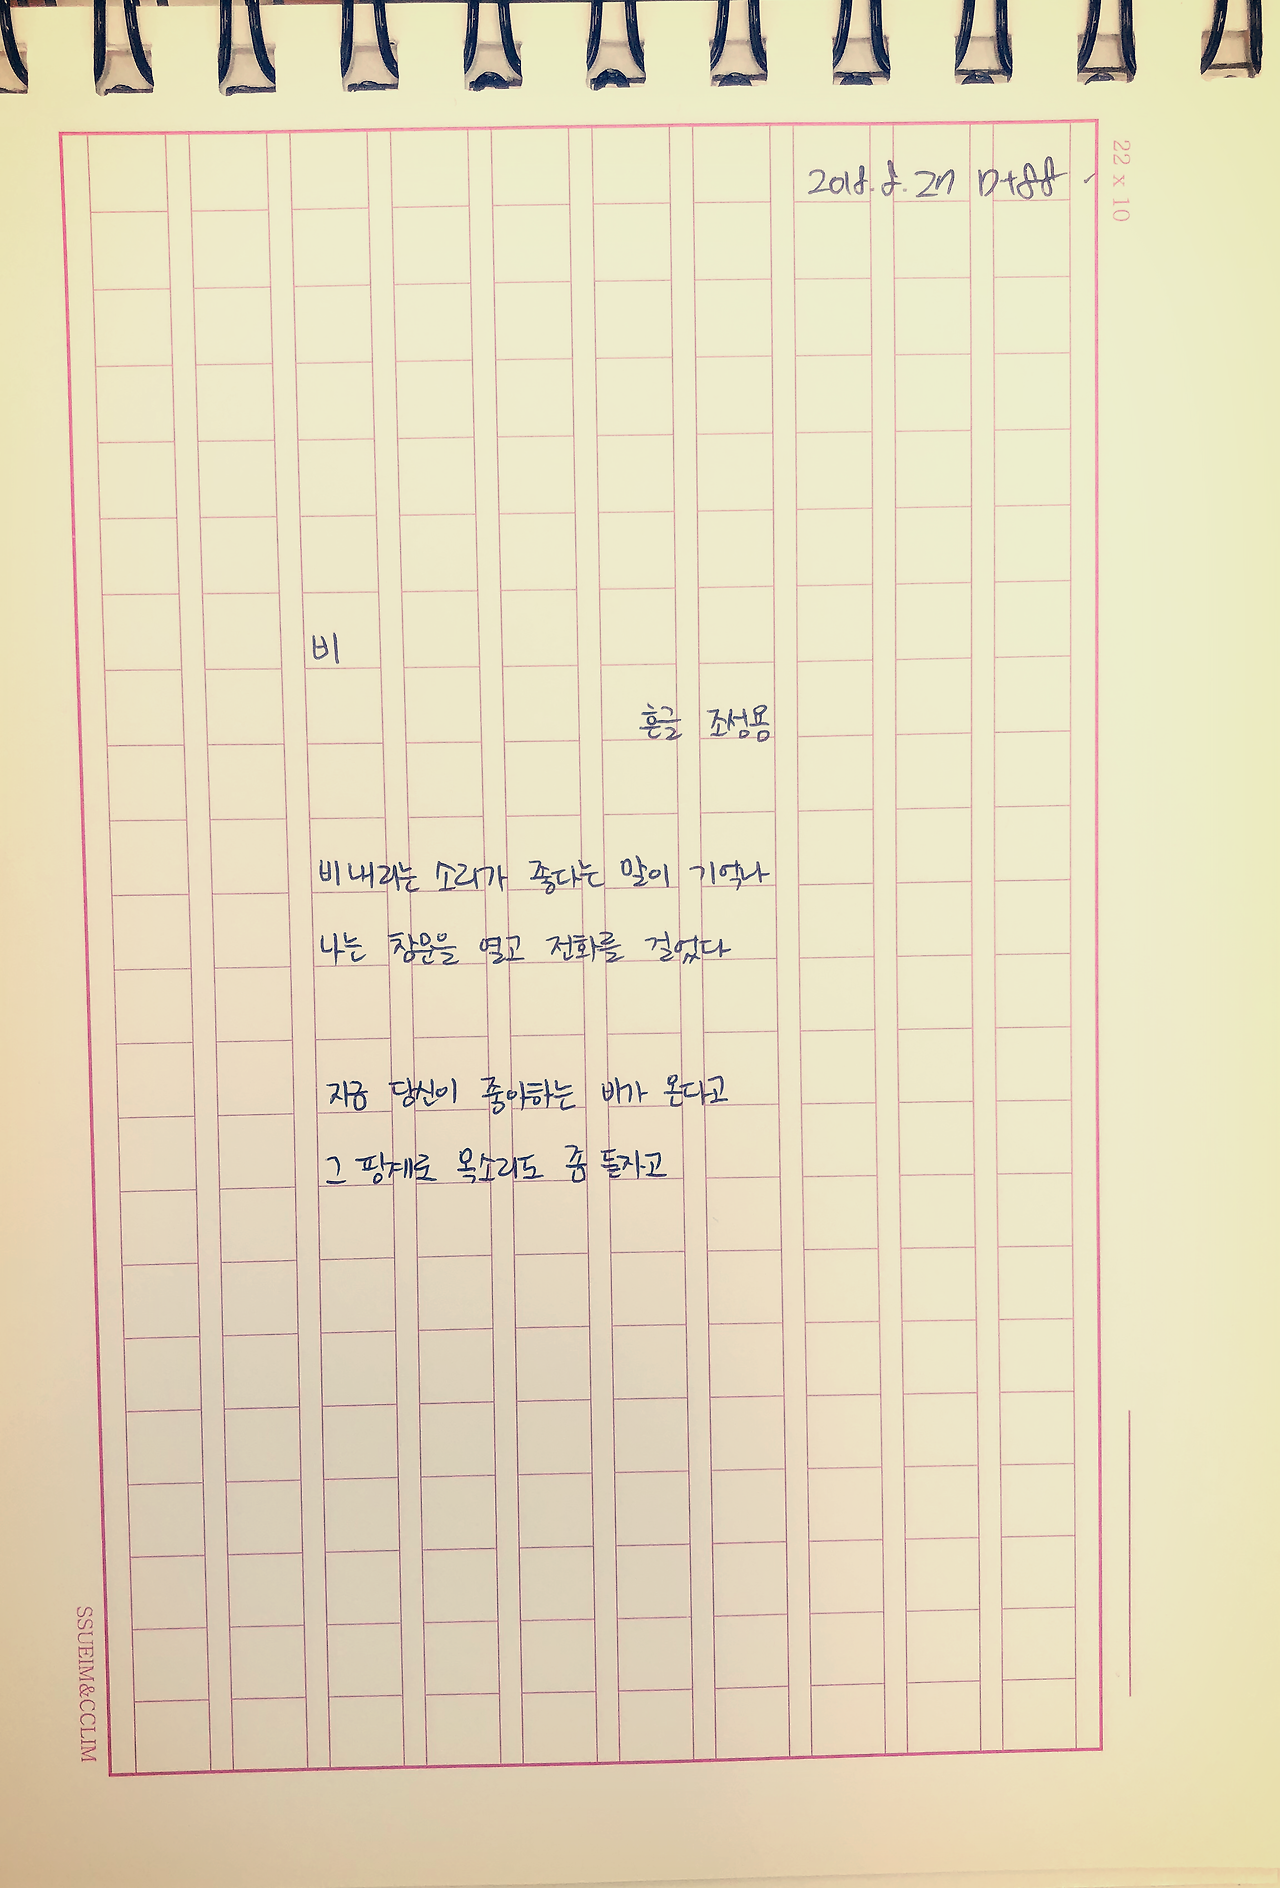 2018. 8. 27 D+88
22 x 10
비
흔글 조성용
비 내리는 소리가 좋다는 말이 기억나
나는 창문을 열고 전화를 걸었다
지금 당신이 좋아하는 비가 온다고
그 핑계로 목소리도 좀 듣자고
SSUEIM&CCLIM